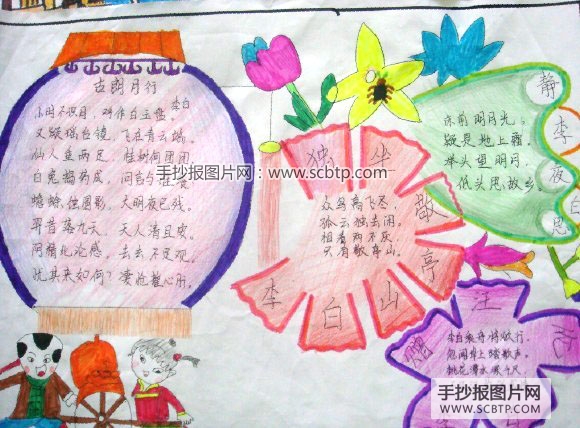 古朗月行
李白
小时不识月，呼作白玉盘。
又疑瑶台镜，飞在青云端。
仙人垂两足，桂树何团团。
白兔捣药成，问言与谁餐
蟾蜍蚀圆影，大明夜已残。
羿昔落九天，天人清且安。
阴精此沦惑，去去不足观。
忧其来如何？凄怆摧心肝。
独坐敬亭山
李白
众鸟高飞尽，
孤云独去闲。
相看两不厌
只有敬亭山。
静夜思
李白
床前明月光，
疑是地上霜。
举头望明月，
低头思故乡。
汪
李白乘舟将欲行，
忽闻岸上踏歌声。
桃花潭水深千尺，
手抄报图片网：www.scbtp.com
手抄报图片网
WWW.SCBTP.COM